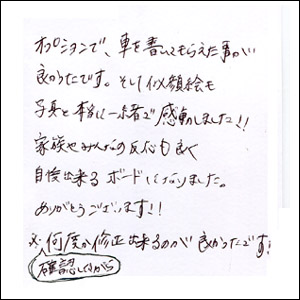 オプションで、車を書いてもらえた事が
良かったです。そして似顔絵も
写真と本当に一緒で感動しました!!
家族やみんなの反応も良く
自慢出来るボードになりました。
ありがとうございます!!
※何度か修正出来るのが良かったです!
確認しながら